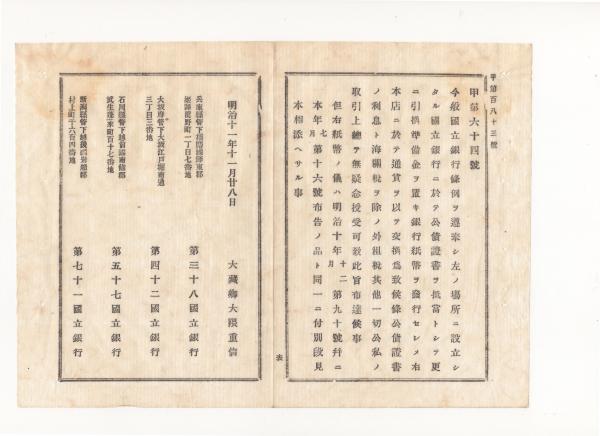 甲第百八十三號
甲第六十四號
今般國立銀行條例ヲ遵奉シ左ノ塲所ニ設立シ
タル國立銀行ニ於テ公債證書ヲ抵當トシヲ更
ニ引換準備金ヲ置キ銀行紙幣ヲ發行セシメ右
本店ニ於テ通貨ヲ以テ交換爲致候條公債證書
ノ利息ト海關税ヲ除ノ外租税其他一切公私ノ
取引上總テ無疑念授受可致此旨布達候事
但右紙幣ノ儀ハ明治十年十二月第九十號幷ニ
本年七月第十六號布告ノ品ト同一ニ付別段見
本相添ヘサル事
表
明治十一年十一月廿八日
大藏卿大隈重信
兵庫縣管下播磨國飾東郡
姫路龍野町一丁目七番地
第三十八國立銀行
大坂府管下大坂江戸堀南通
三丁目三番地
第四十二國立銀行
石川縣管下越前國南條郡
武生蓬萊町百十七番地
第五十七國立銀行
新潟縣管下越後國岩船郡
村上町千六百四番地
第七十一國立銀行